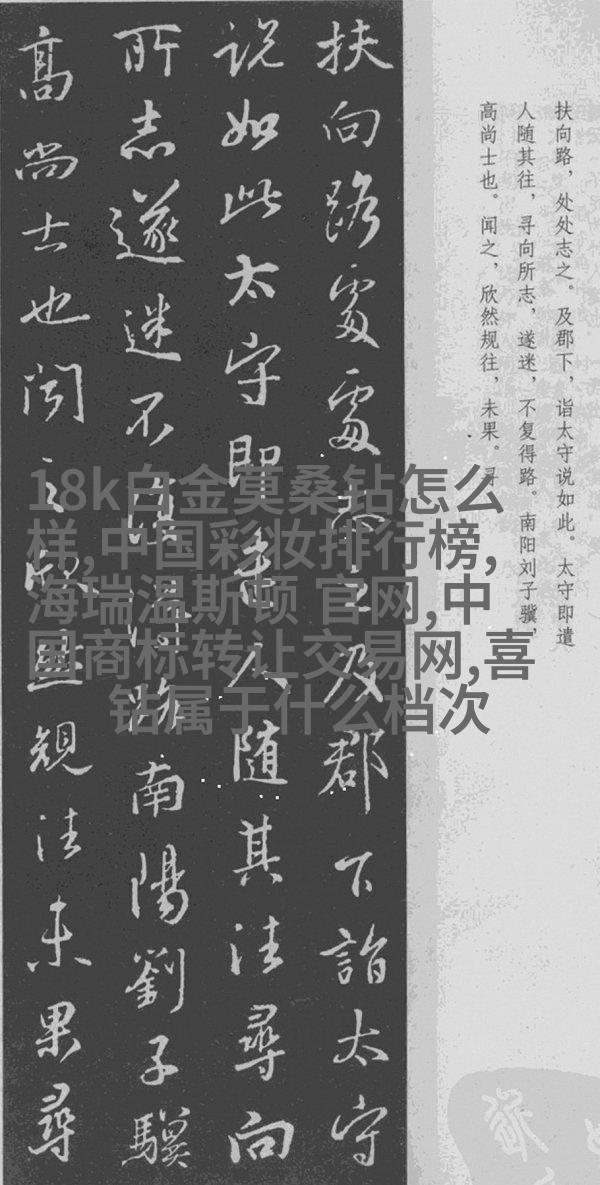 扶向路處處志之及郡下詣太守
说如此太守即遣人随其往尋向
所志遂迷不復得路南陽劉子驥
高尚士也闻之欣然規往未果尋
扶向路，处处志之。及郡下，诣太守说如此。太守即遣
人随其往，寻向所志，遂迷，不复得路。南阳刘子骥，
高尚士也。闻之，欣然规往，未果。寻
18k白金莫桑钻怎么
样,中国彩妆排行榜,
海瑞温斯顿 官网,中
国商标转让交易网,喜
钻属于什么档次